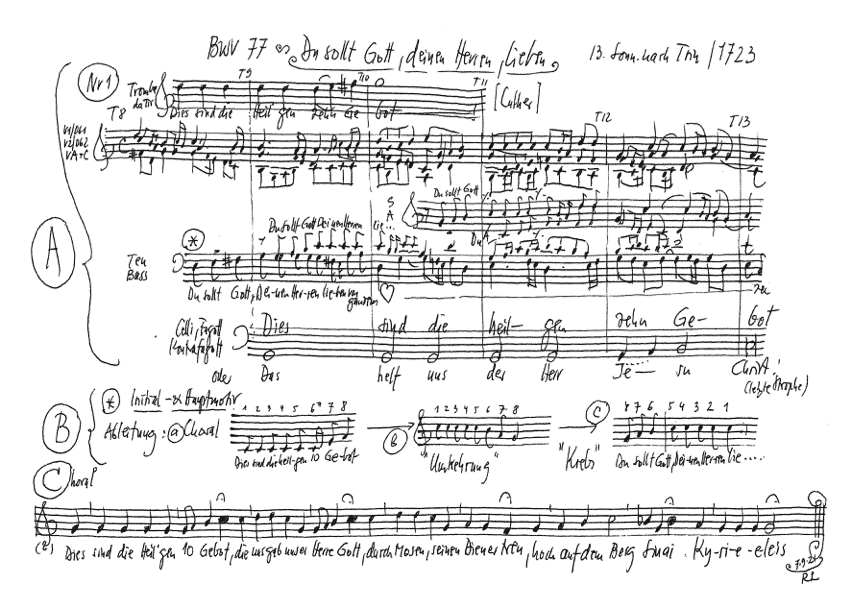 BWV 77 Du sollt Gott, deinen Herren, lieben 13. Sonn. nach Trin / 1723
Nr 1 Tromba da Tir T9 T10 T11 [Luther]
Dies sind die Heil'gen zehn Ge bot
T8 T12 T13
V1/Ob1
V2/Ob2
VA+C
S Du sollt Gott
A
Du sollt Gott Deinen Herren lie...
A
*
Ten
Bass
Du sollt Gott, Dei-nen Her-ren lie-ben von ganzem
Celli, Fagott
Kontrafagott
Dies sind die heil- gen zehn Ge- bot
oder Das helf uns der Herr Je - su Christ
(letzte Strophe)
B * Initial - oder Hauptmotiv
1 2 3 4 5 6 7 8 B 1 2 3 4 5 6 7 8 C 8 7 6 5 4 3 2 1
Ableitung: a Choral
Dies sind die heil-gen 10 Ge-bot "Umkehrung" "Krebs" Du sollt Gott, Dei-nen Her-ren lie....
Choral
Dies sind die Heil'gen 10 Gebot, die uns gab unser Herre Gott, durch Mosen, seinen Diener treu, hoch auf dem Berg Sinai. Ky-ri-e-eleis
RL